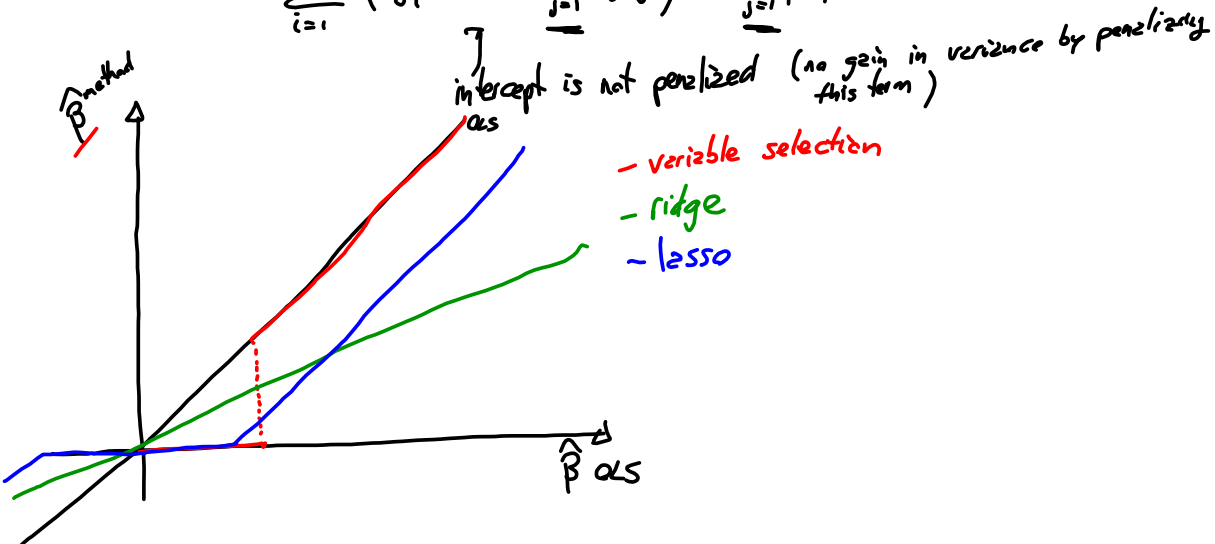 i=1
j=1
j=1
intercept is not penalized (no gain in variance by penalizing
this term)
β̂ method
OLS
- variable selection
- ridge
- lasso
β̂ OLS